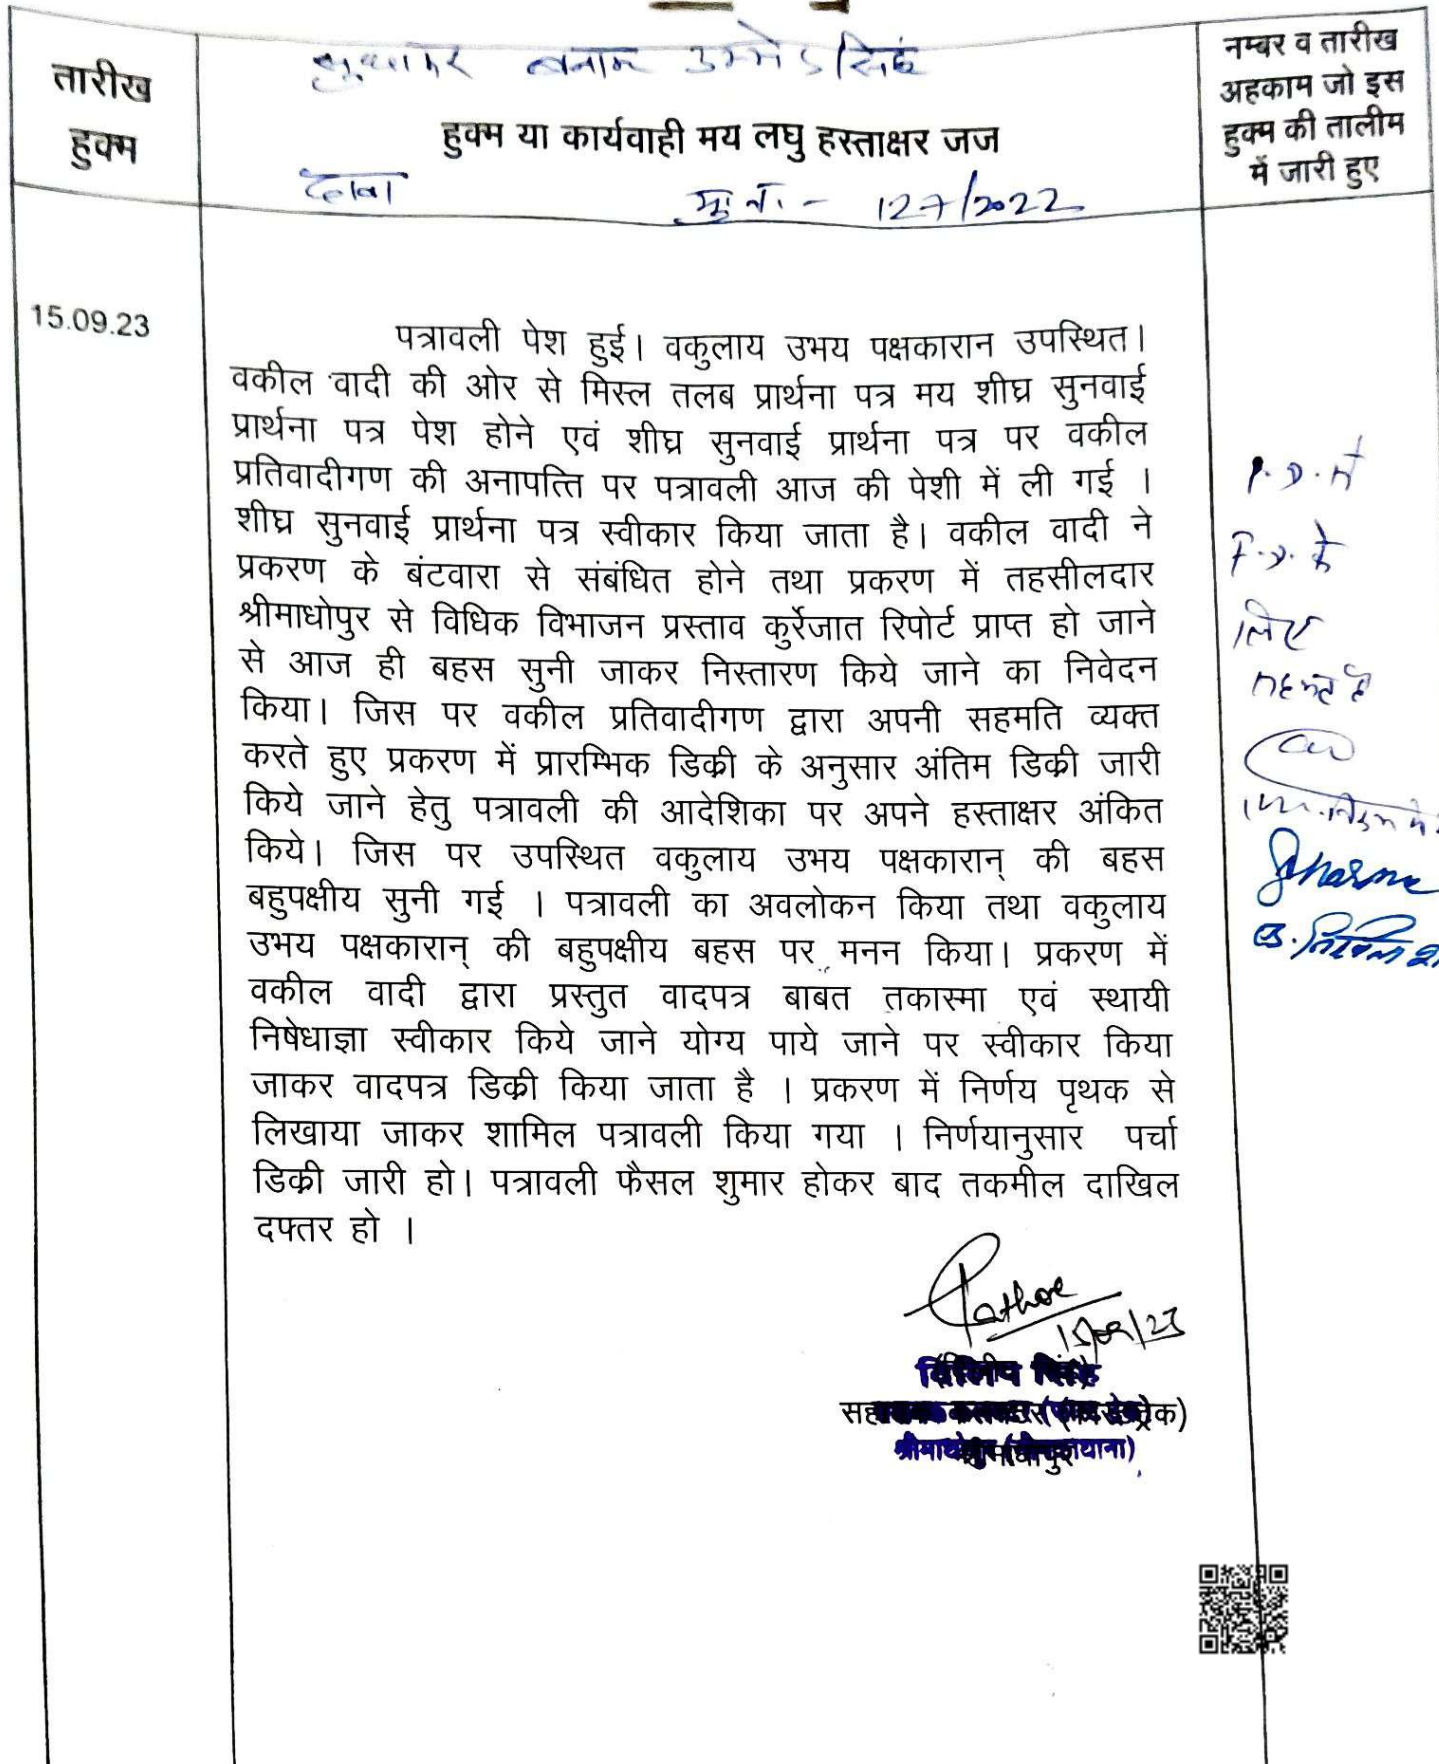 बनाम उम्मेद सिंह
तारीख
हुक्म
हुक्म या कार्यवाही मय लघु हस्ताक्षर जज
नम्बर व तारीख
अहकाम जो इस
हुक्म की तालीम
में जारी हुए
दावा मु. नं. - 127/2022
15.09.23
पत्रावली पेश हुई। वकुलाय उभय पक्षकारान उपस्थित।
वकील वादी की ओर से मिस्ल तलब प्रार्थना पत्र मय शीघ्र सुनवाई
प्रार्थना पत्र पेश होने एवं शीघ्र सुनवाई प्रार्थना पत्र पर वकील
प्रतिवादीगण की अनापत्ति पर पत्रावली आज की पेशी में ली गई ।
शीघ्र सुनवाई प्रार्थना पत्र स्वीकार किया जाता है। वकील वादी ने
प्रकरण के बंटवारा से संबंधित होने तथा प्रकरण में तहसीलदार
श्रीमाधोपुर से विधिक विभाजन प्रस्ताव कुर्रेजात रिपोर्ट प्राप्त हो जाने
से आज ही बहस सुनी जाकर निस्तारण किये जाने का निवेदन
किया। जिस पर वकील प्रतिवादीगण द्वारा अपनी सहमति व्यक्त
करते हुए प्रकरण में प्रारम्भिक डिक्री के अनुसार अंतिम डिक्री जारी
किये जाने हेतु पत्रावली की आदेशिका पर अपने हस्ताक्षर अंकित
किये। जिस पर उपस्थित वकुलाय उभय पक्षकारान् की बहस
बहुपक्षीय सुनी गई । पत्रावली का अवलोकन किया तथा वकुलाय
उभय पक्षकारान् की बहुपक्षीय बहस पर मनन किया। प्रकरण में
वकील वादी द्वारा प्रस्तुत वादपत्र बाबत तकास्मा एवं स्थायी
निषेधाज्ञा स्वीकार किये जाने योग्य पाये जाने पर स्वीकार किया
जाकर वादपत्र डिक्री किया जाता है । प्रकरण में निर्णय पृथक से
लिखाया जाकर शामिल पत्रावली किया गया । निर्णयानुसार पर्चा
डिक्री जारी हो। पत्रावली फैसल शुमार होकर बाद तकमील दाखिल
दफ्तर हो ।
P.D. में
F.D. के
लिए
सहमत है
Sharma
15/09/23
दिलीप सिंह